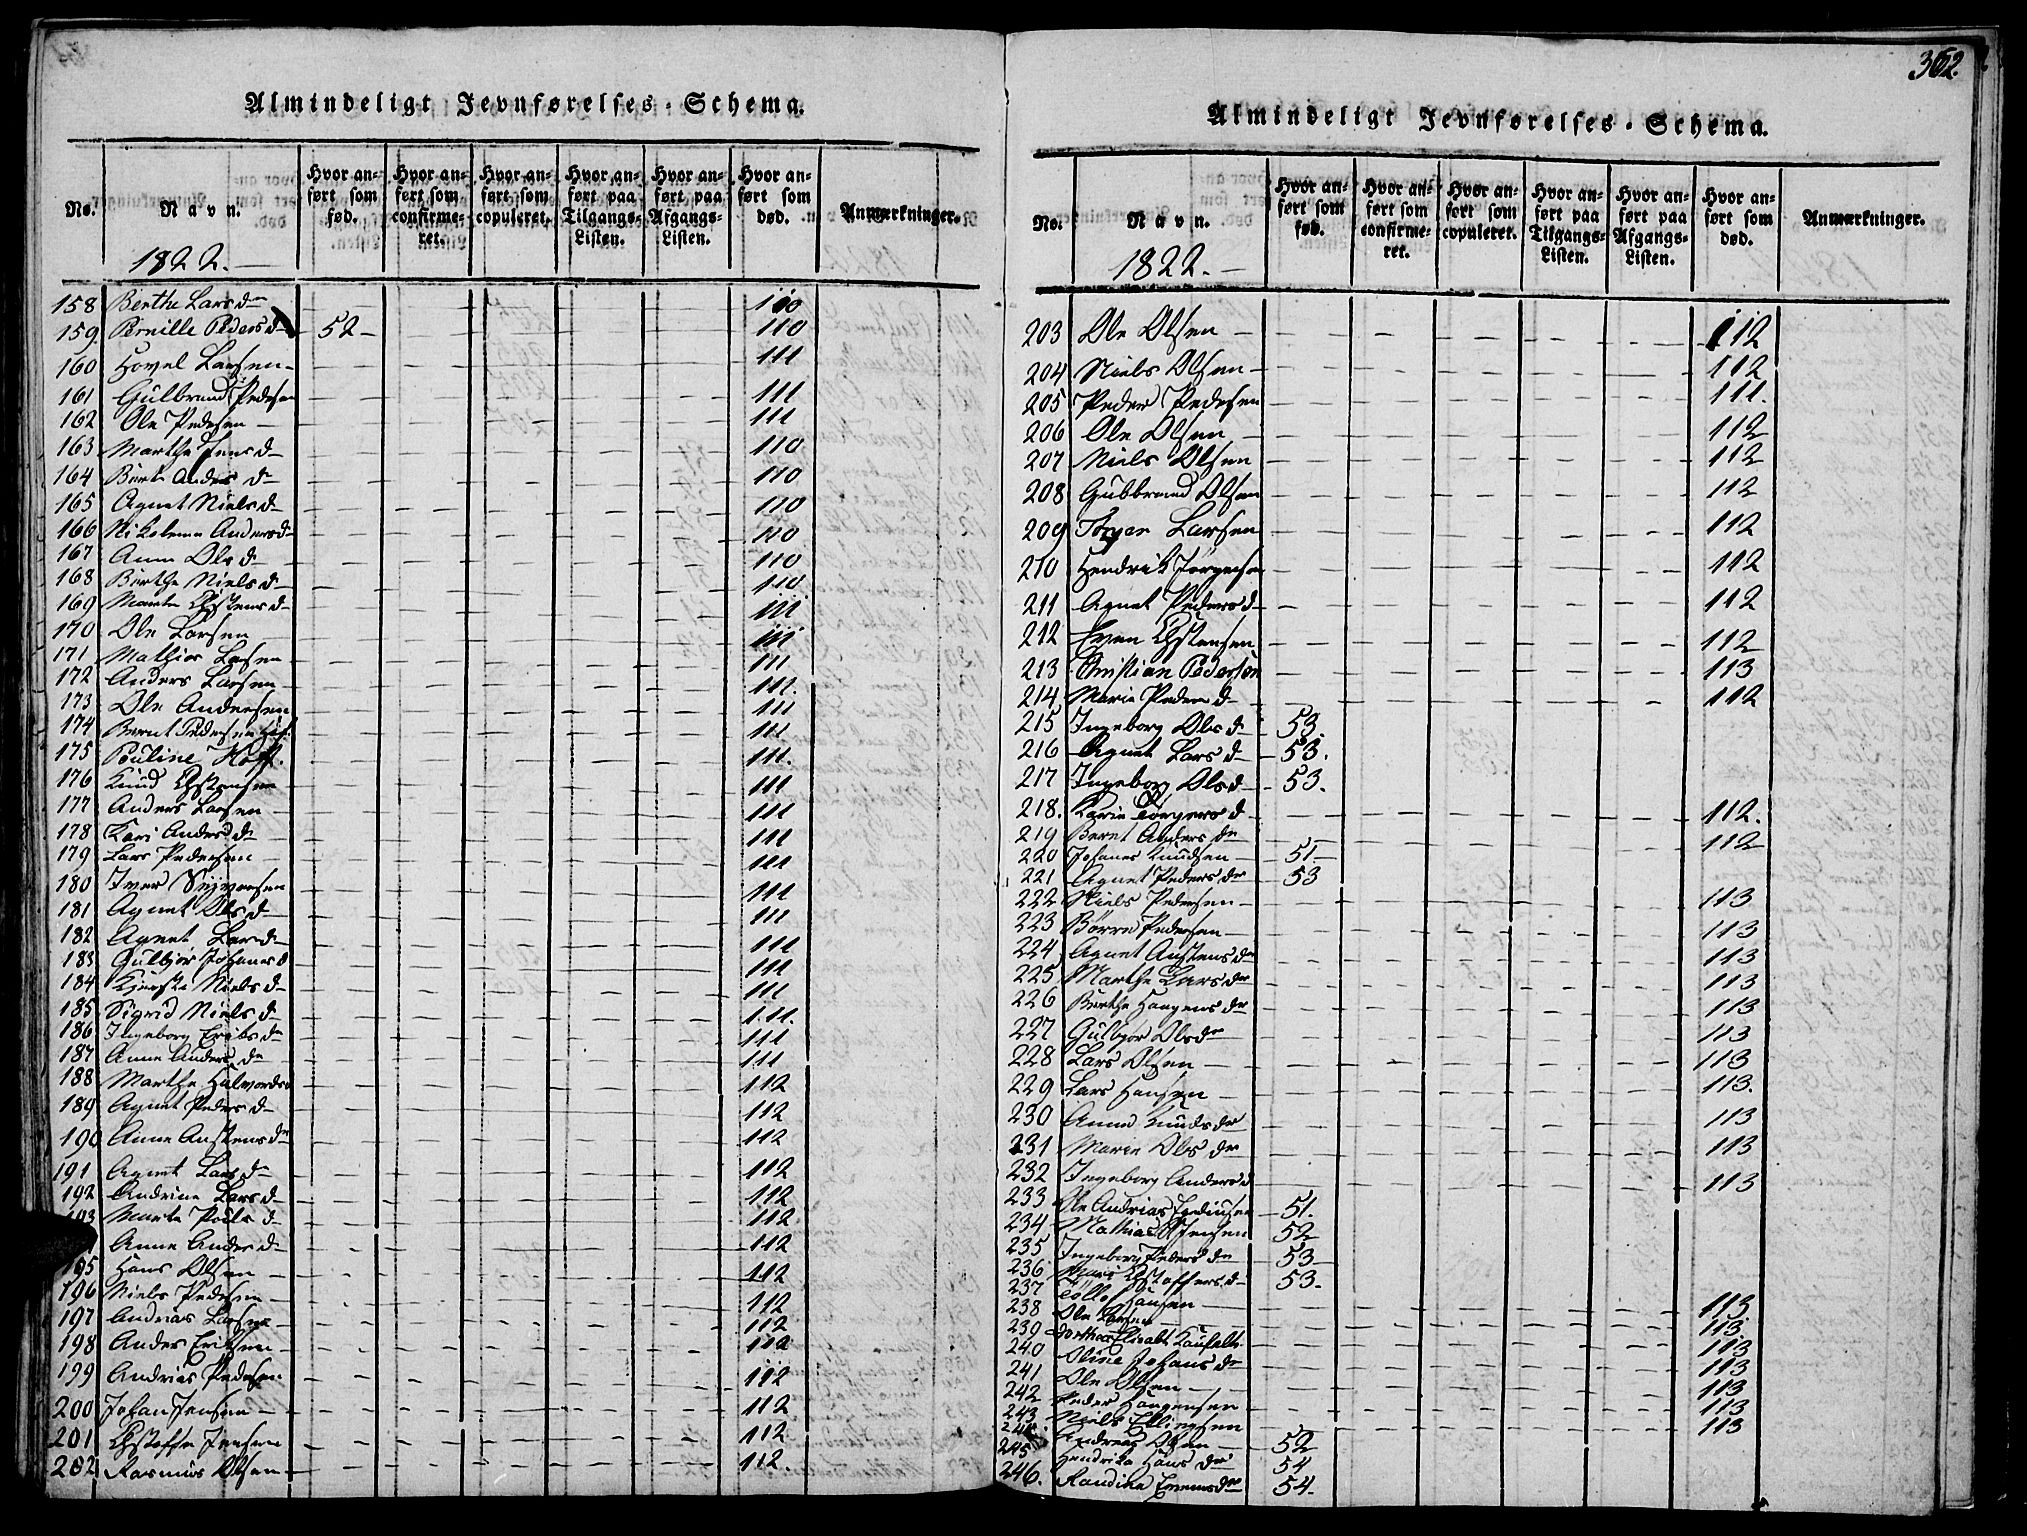 Almindeligt Jevnførelses-Schema.
No. Navn. Hvor anført som fød. Hvor anført som confirmeret. Hvor anført som copuleret. Hvor anført paa Tilgangs-Listen. Hvor anført paa Afgangs-Listen. Hvor anført som død. Anmærkninger.
1822.
158 Berthe Larsd 110
159 Pernille Pedersd 52 110
160 Hovel Larsen 111
161 Gulbrand Pedersen 111
162 Ole Pedersen 111
163 Marthe Jensd 110
164 Berte Andersd 110
165 Agnet Nielsd 110
166 Nikolena Andersd 110
167 Anne Olsd 110
168 Berthe Nielsd 110
169 Marte Østensd 111
170 Ole Larsen 111
171 Mathias Larsen 111
172 Anders Larsen 111.
173 Ole Andersen 111
174 Bernt Pedersen 111
175 Pouline Hoff. 111.
176 Knud Østensen 111
177 Anders Larsen 111
178 Kari Andersd 111
179 Lars Pedersen 111
180 Iver Syversen 111
181 Agnet Olsd 111
182 Agnet Larsd 111
183 Gulbjør Johannesd 111
184 Kjersti Nielsd 111
185 Sigrid Nielsd 111.
186 Ingeborg Eriksd 111
187 Anne Andersd 111
188 Marthe Halvorsd 112
189 Agnet Pedersd 112
190 Anne Austensd 112
191 Agnet Larsd 112
192 Andrine Larsd 112
193 Marte Poulsd 112
Anne Andersd 112
195 Hans Olsen 112
196 Niels Pedersen 112
197 Andreas Larsen 112
198 Anders Eriksen 112
199 Andreas Pedersen 112
200 Johan Jensen 112
201 Østoffe Jensen 112.
202 Rasmus Olsen 112.
362.
Almindeligt Jevnførelses-Schema.
No. Navn. Hvor anført som fød. Hvor anført som confirmeret. Hvor anført som copuleret. Hvor anført paa Tilgangs-Listen. Hvor anført paa Afgangs-Listen. Hvor anført som død. Anmærkninger.
1822.
203 Ole Olsen 112
204 Niels Olsen 112
205 Peder Pedersen 111.
206 Ole Olsen 112
207 Niels Olsen 112
208 Gulbrand Olsen 112
209 Larsen 112
210 Hendrik Jørgensen 112
211 Agnet Pedersd 112
212 Even Østensen 112
213 Christian Pedersen 113
214 Marie Pedersd 112
215 Ingeborg Olsd 53.
216 Agnet Larsd 53.
217 Ingeborg Olsd 53.
218. Karie Torgersd 112.
219 Beret Andersd 112
220 Johanes Knudsen 51
221 Agnet Pedersdr 53
222 Niels Pedersen 113
223 Børre Pedersen 113
224 Agnet Austensdr 113
225 Marthe Larsdr 113
226 Berthe Haagensdr 113
227 Gulbjør Olsdr 113
228 Lars Olsen 113
229 Lars Hansen 113.
230 Anne Knudsdr 113
231 Marie Olsdr 113
232 Ingeborg Andersd 113
233 Ole Andreas 51.
234 Mathias 52
235 Ingeborg Pedersdr 53
236 Marie Østoffersd 53.
237 Tollef Hansen 113
238 Ole Larsen 113
239 Dorthea Elisabt 113
240 Oline Johansdr 113
241 Ole Olsen 113
242 Peder Haagensen 113
243 Niels Ellingsen 113
244 Andreas Olsen 52
245 Hendrika Hansdr 54
246. Randine 54.